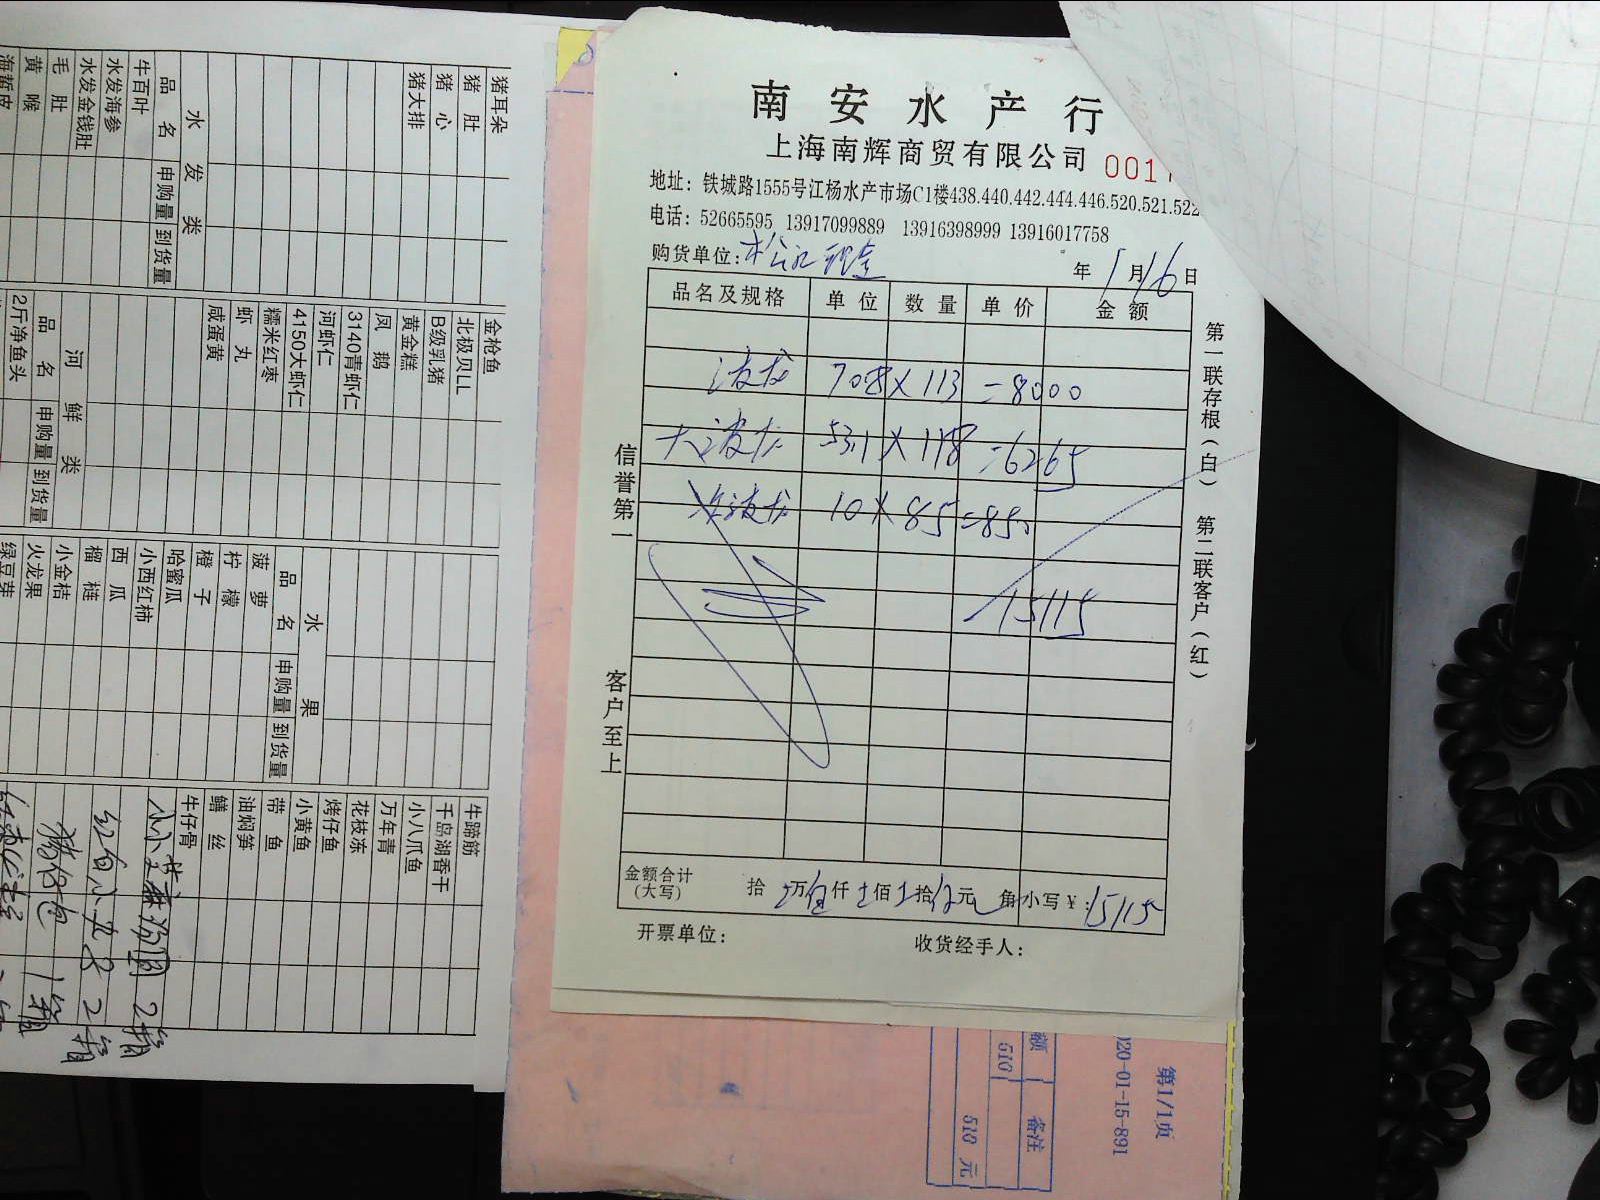 南安水产行
上海南辉商贸有限公司 001
地址：铁城路1555号江杨水产市场C1楼438.440.442.444.446.520.521.522
电话：52665595 13917099889 13916398999 13916017758
购货单位：
年 1月16日
品名及规格 单位 数量 单价 金额
波龙 70.8×113=8000
大波龙 53.1×118=6265
波龙 10×85=850
15115
金额合计（大写） 拾 万伍仟 佰 拾 元 角 小写￥：15115
开票单位： 收货经手人：
信誉第一 客户至上
第一联存根（白） 第二联客户（红）
猪耳朵
猪肚
猪心
猪大排
水发类
品名 申购量 到货量
牛百叶
水发海参
水发金钱肚
毛肚
黄喉
海蜇皮
金枪鱼
北极贝LL
B级乳猪
黄金糕
凤鹅
3140青虾仁
河虾仁
4150大虾仁
糯米红枣
虾丸
咸蛋黄
河鲜类
品名 申购量 到货量
2斤净鱼头
水果
品名 申购量 到货量
菠萝
柠檬
橙子
哈蜜瓜
小西红柿
西瓜
榴梿
小金桔
火龙果
绿豆芽
牛蹄筋
千岛湖香干
小八爪鱼
万年青
花枝冻
烤仔鱼
小黄鱼
带鱼
油焖笋
鳝丝
牛仔骨
小芝麻汤圆 2箱
红白小丸子 2箱
1箱
第1/1页
020-01-15-891
额 备注
510
510 元